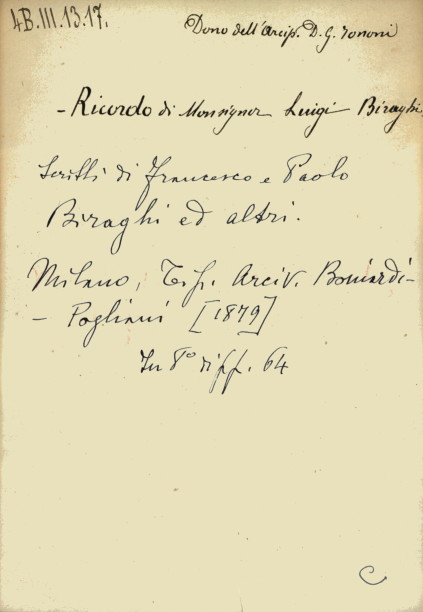 4B.III.13.17.
Dono dell'Arcip. D. G. Tononi
- Ricordo di Monsignor Luigi Biraghi.
Scritti di Francesco e Paolo
Biraghi ed altri.
Milano, Tip. Arciv. Boniardi-
- Pogliani [1879]
In 8° di pp. 64
C